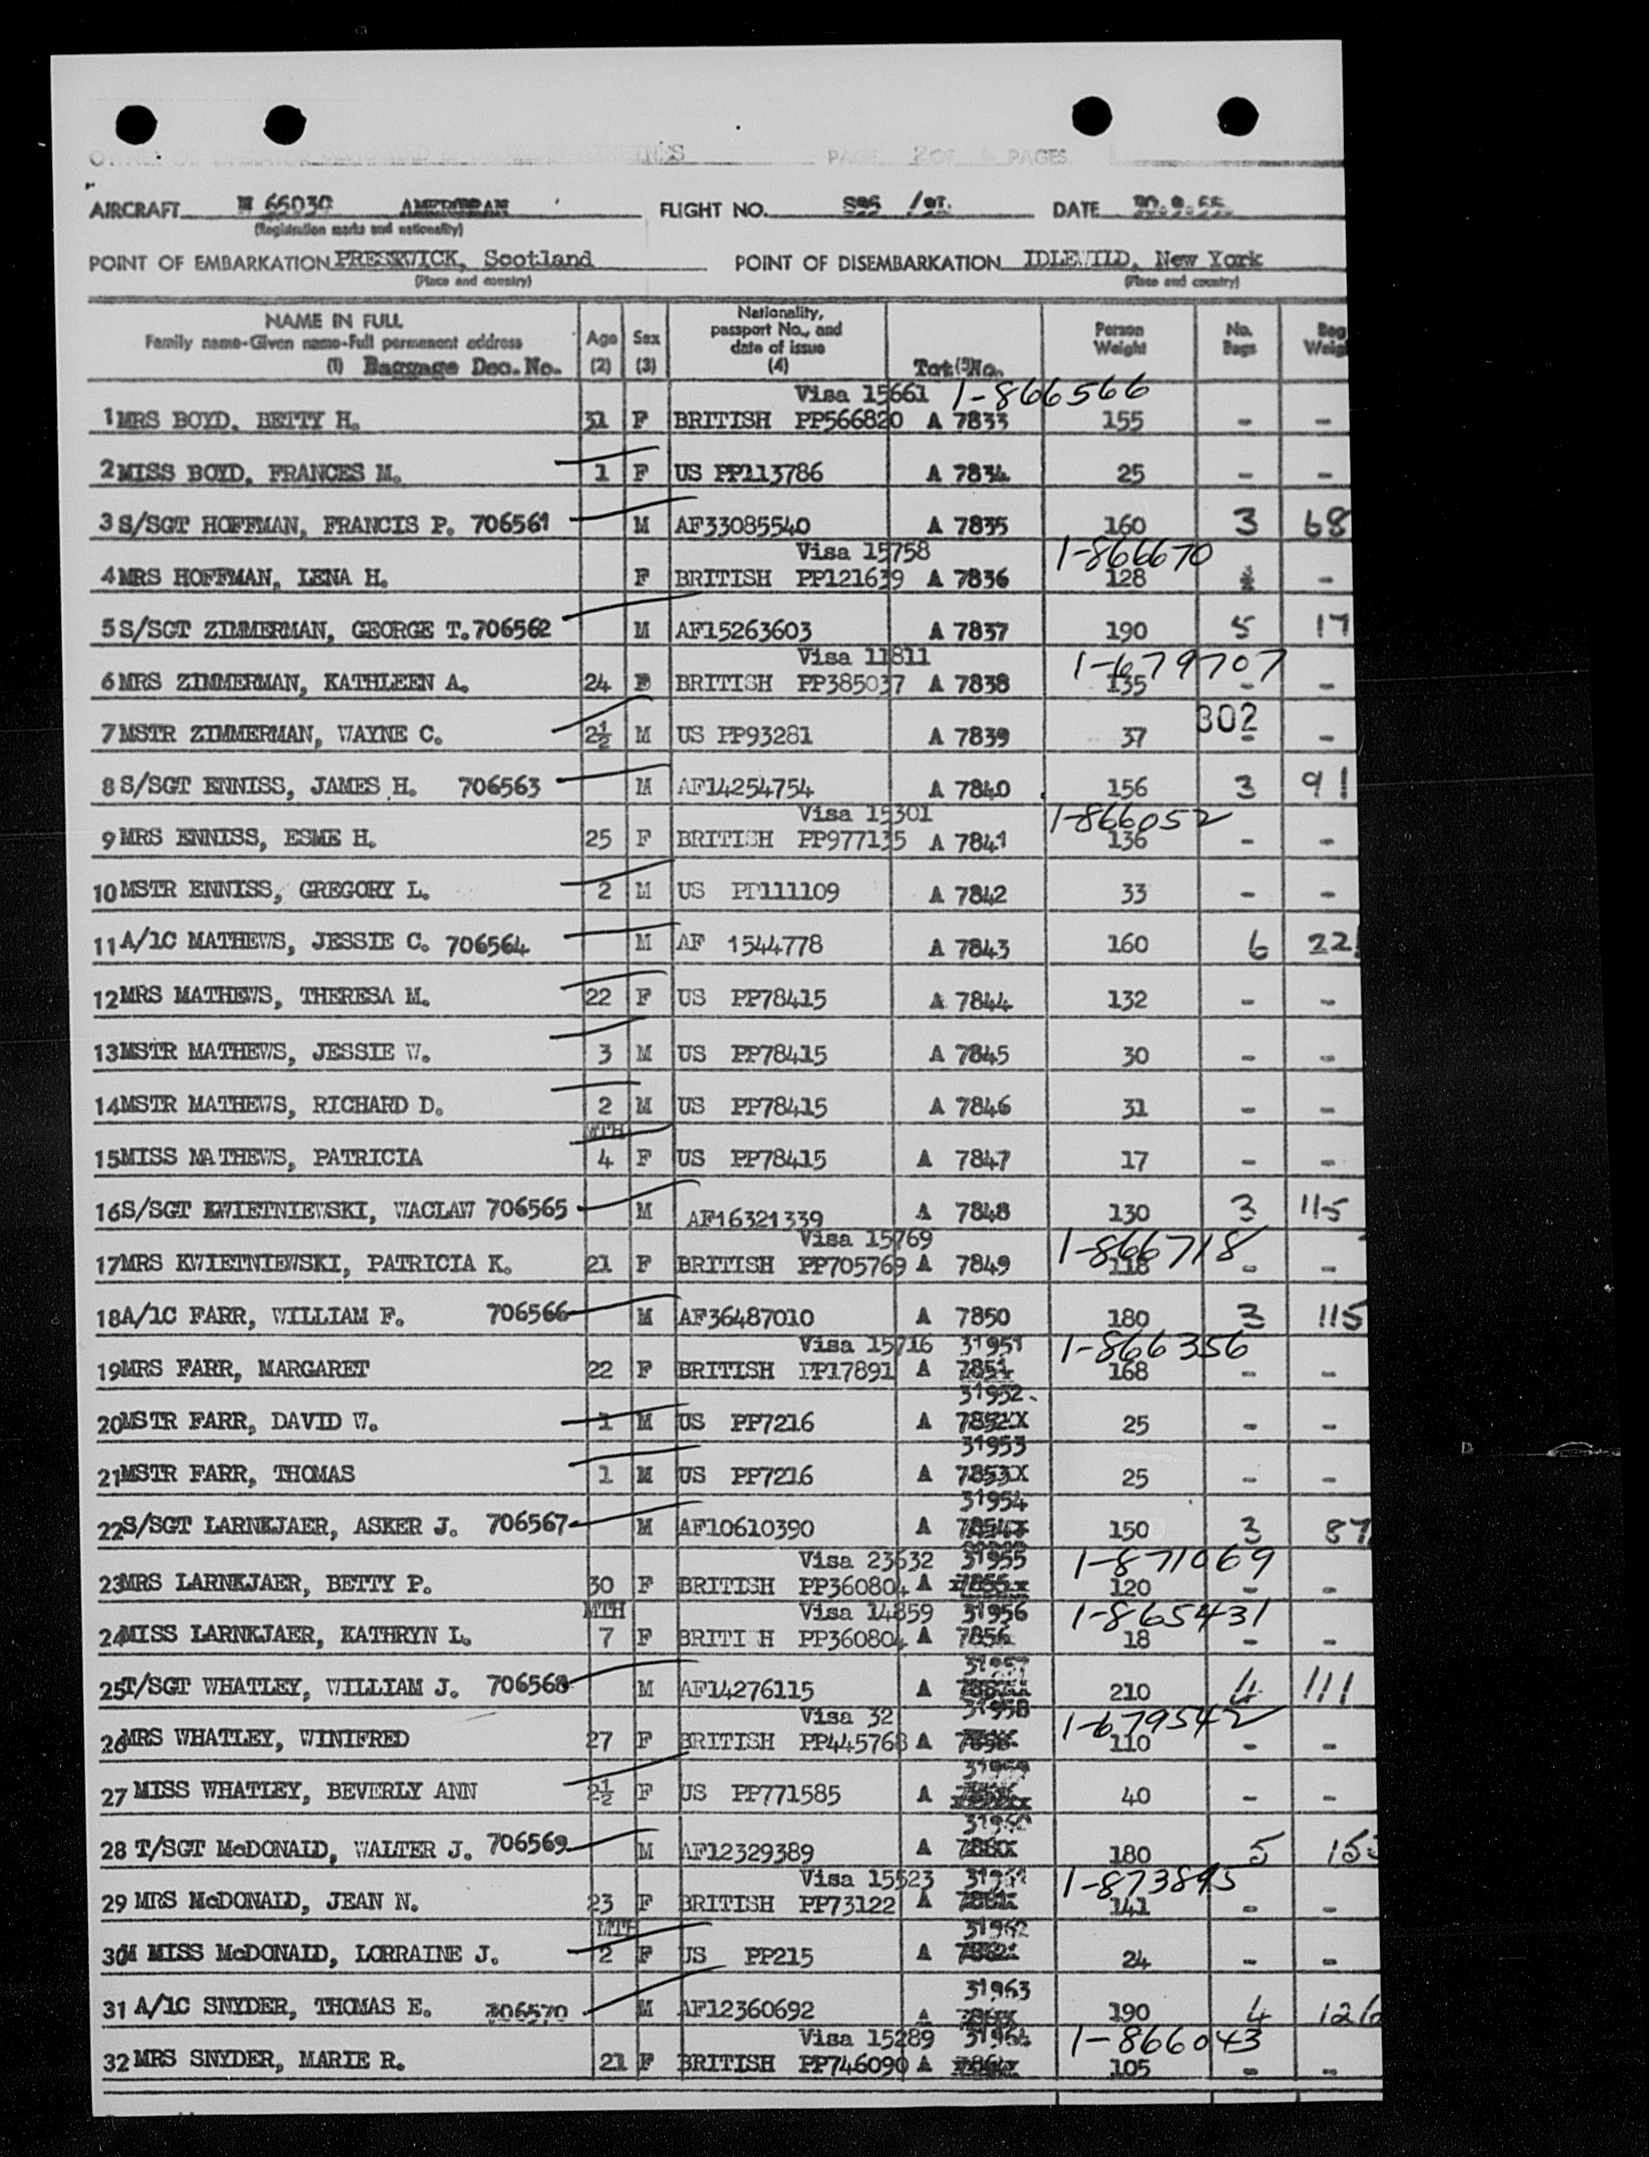 PAGE 2 OF PAGES
AIRCRAFT N 66030 AMERICAN FLIGHT NO. DATE
(Registration marks and nationality)
POINT OF EMBARKATION PRESTWICK, Scotland POINT OF DISEMBARKATION IDLEWILD, New York
(Place and country) (Place and country)
NAME IN FULL
Family name-Given name-Full permanent address
(1) Baggage Dec. No.
Age (2)
Sex (3)
Nationality, passport No., and date of issue (4)
No.
Person Weight
No. Bags
Bag Weig
Visa 15661 1-866566
1 MRS BOYD, BETTY H. 31 F BRITISH PP566820 A 7833 155 - -
2 MISS BOYD, FRANCES M. 1 F US PP113786 A 7834 25 - -
3 S/SGT HOFFMAN, FRANCIS P. 706561 M AF33085540 A 7835 160 3 68
Visa 15758 1-866670
4 MRS HOFFMAN, LENA H. F BRITISH PP121639 A 7836 128 -
5 S/SGT ZIMMERMAN, GEORGE T. 706562 M AF15263603 A 7837 190 5 17
Visa 11811 1-679707
6 MRS ZIMMERMAN, KATHLEEN A. 24 F BRITISH PP385037 A 7838 135 - -
302
7 MSTR ZIMMERMAN, WAYNE C. 2½ M US PP93281 A 7839 37 - -
8 S/SGT ENNISS, JAMES H. 706563 M AF14254754 A 7840 156 3 91
Visa 15301 1-866052
9 MRS ENNISS, ESME H. 25 F BRITISH PP977135 A 7841 136 - -
10 MSTR ENNISS, GREGORY L. 2 M US PP111109 A 7842 33 - -
11 A/1C MATHEWS, JESSIE C. 706564 M AF 1544778 A 7843 160 6 22
12 MRS MATHEWS, THERESA M. 22 F US PP78415 A 7844 132 - -
13 MSTR MATHEWS, JESSIE W. 3 M US PP78415 A 7845 30 - -
14 MSTR MATHEWS, RICHARD D. 2 M US PP78415 A 7846 31 - -
MTH
15 MISS MATHEWS, PATRICIA 4 F US PP78415 A 7847 17 - -
16 S/SGT KWIETNIEWSKI, WACLAW 706565 M AF16321339 A 7848 130 3 115
Visa 15769 1-866718
17 MRS KWIETNIEWSKI, PATRICIA K. 21 F BRITISH PP705769 A 7849 118 - -
18 A/1C FARR, WILLIAM F. 706566 M AF36487010 A 7850 180 3 115
Visa 15716 31951 1-866356
19 MRS FARR, MARGARET 22 F BRITISH PP17891 A 7851 168 - -
31952
20 MSTR FARR, DAVID W. 1 M US PP7216 A 7852XX 25 - -
31953
21 MSTR FARR, THOMAS 1 M US PP7216 A 7853X 25 - -
31954
22 S/SGT LARNKJAER, ASKER J. 706567 M AF10610390 A 150 3 87
Visa 23632 31955 1-871069
23 MRS LARNKJAER, BETTY P. 30 F BRITISH PP360804 A 120 - -
MTH Visa 14859 31956 1-865431
24 MISS LARNKJAER, KATHRYN L. 7 F BRITI H PP360804 A 7856 18 - -
31957
25 T/SGT WHATLEY, WILLIAM J. 706568 M AF14276115 A 210 4 111
Visa 32 31958 1-679542
26 MRS WHATLEY, WINIFRED 27 F BRITISH PP445768 A 110 - -
31959
27 MISS WHATLEY, BEVERLY ANN 2½ F US PP771585 A 40 - -
31960
28 T/SGT McDONALD, WALTER J. 706569 M AF12329389 A 180 5
Visa 15523 31961 1-873895
29 MRS McDONALD, JEAN N. 23 F BRITISH PP73122 A 141 - -
MTH 31962
30M MISS McDONALD, LORRAINE J. 2 F US PP215 A 24 - -
31963
31 A/1C SNYDER, THOMAS E. 706570 M AF12360692 A 190 4 126
Visa 15289 31964 1-866043
32 MRS SNYDER, MARIE R. 21 F BRITISH PP746090 A 105 - -